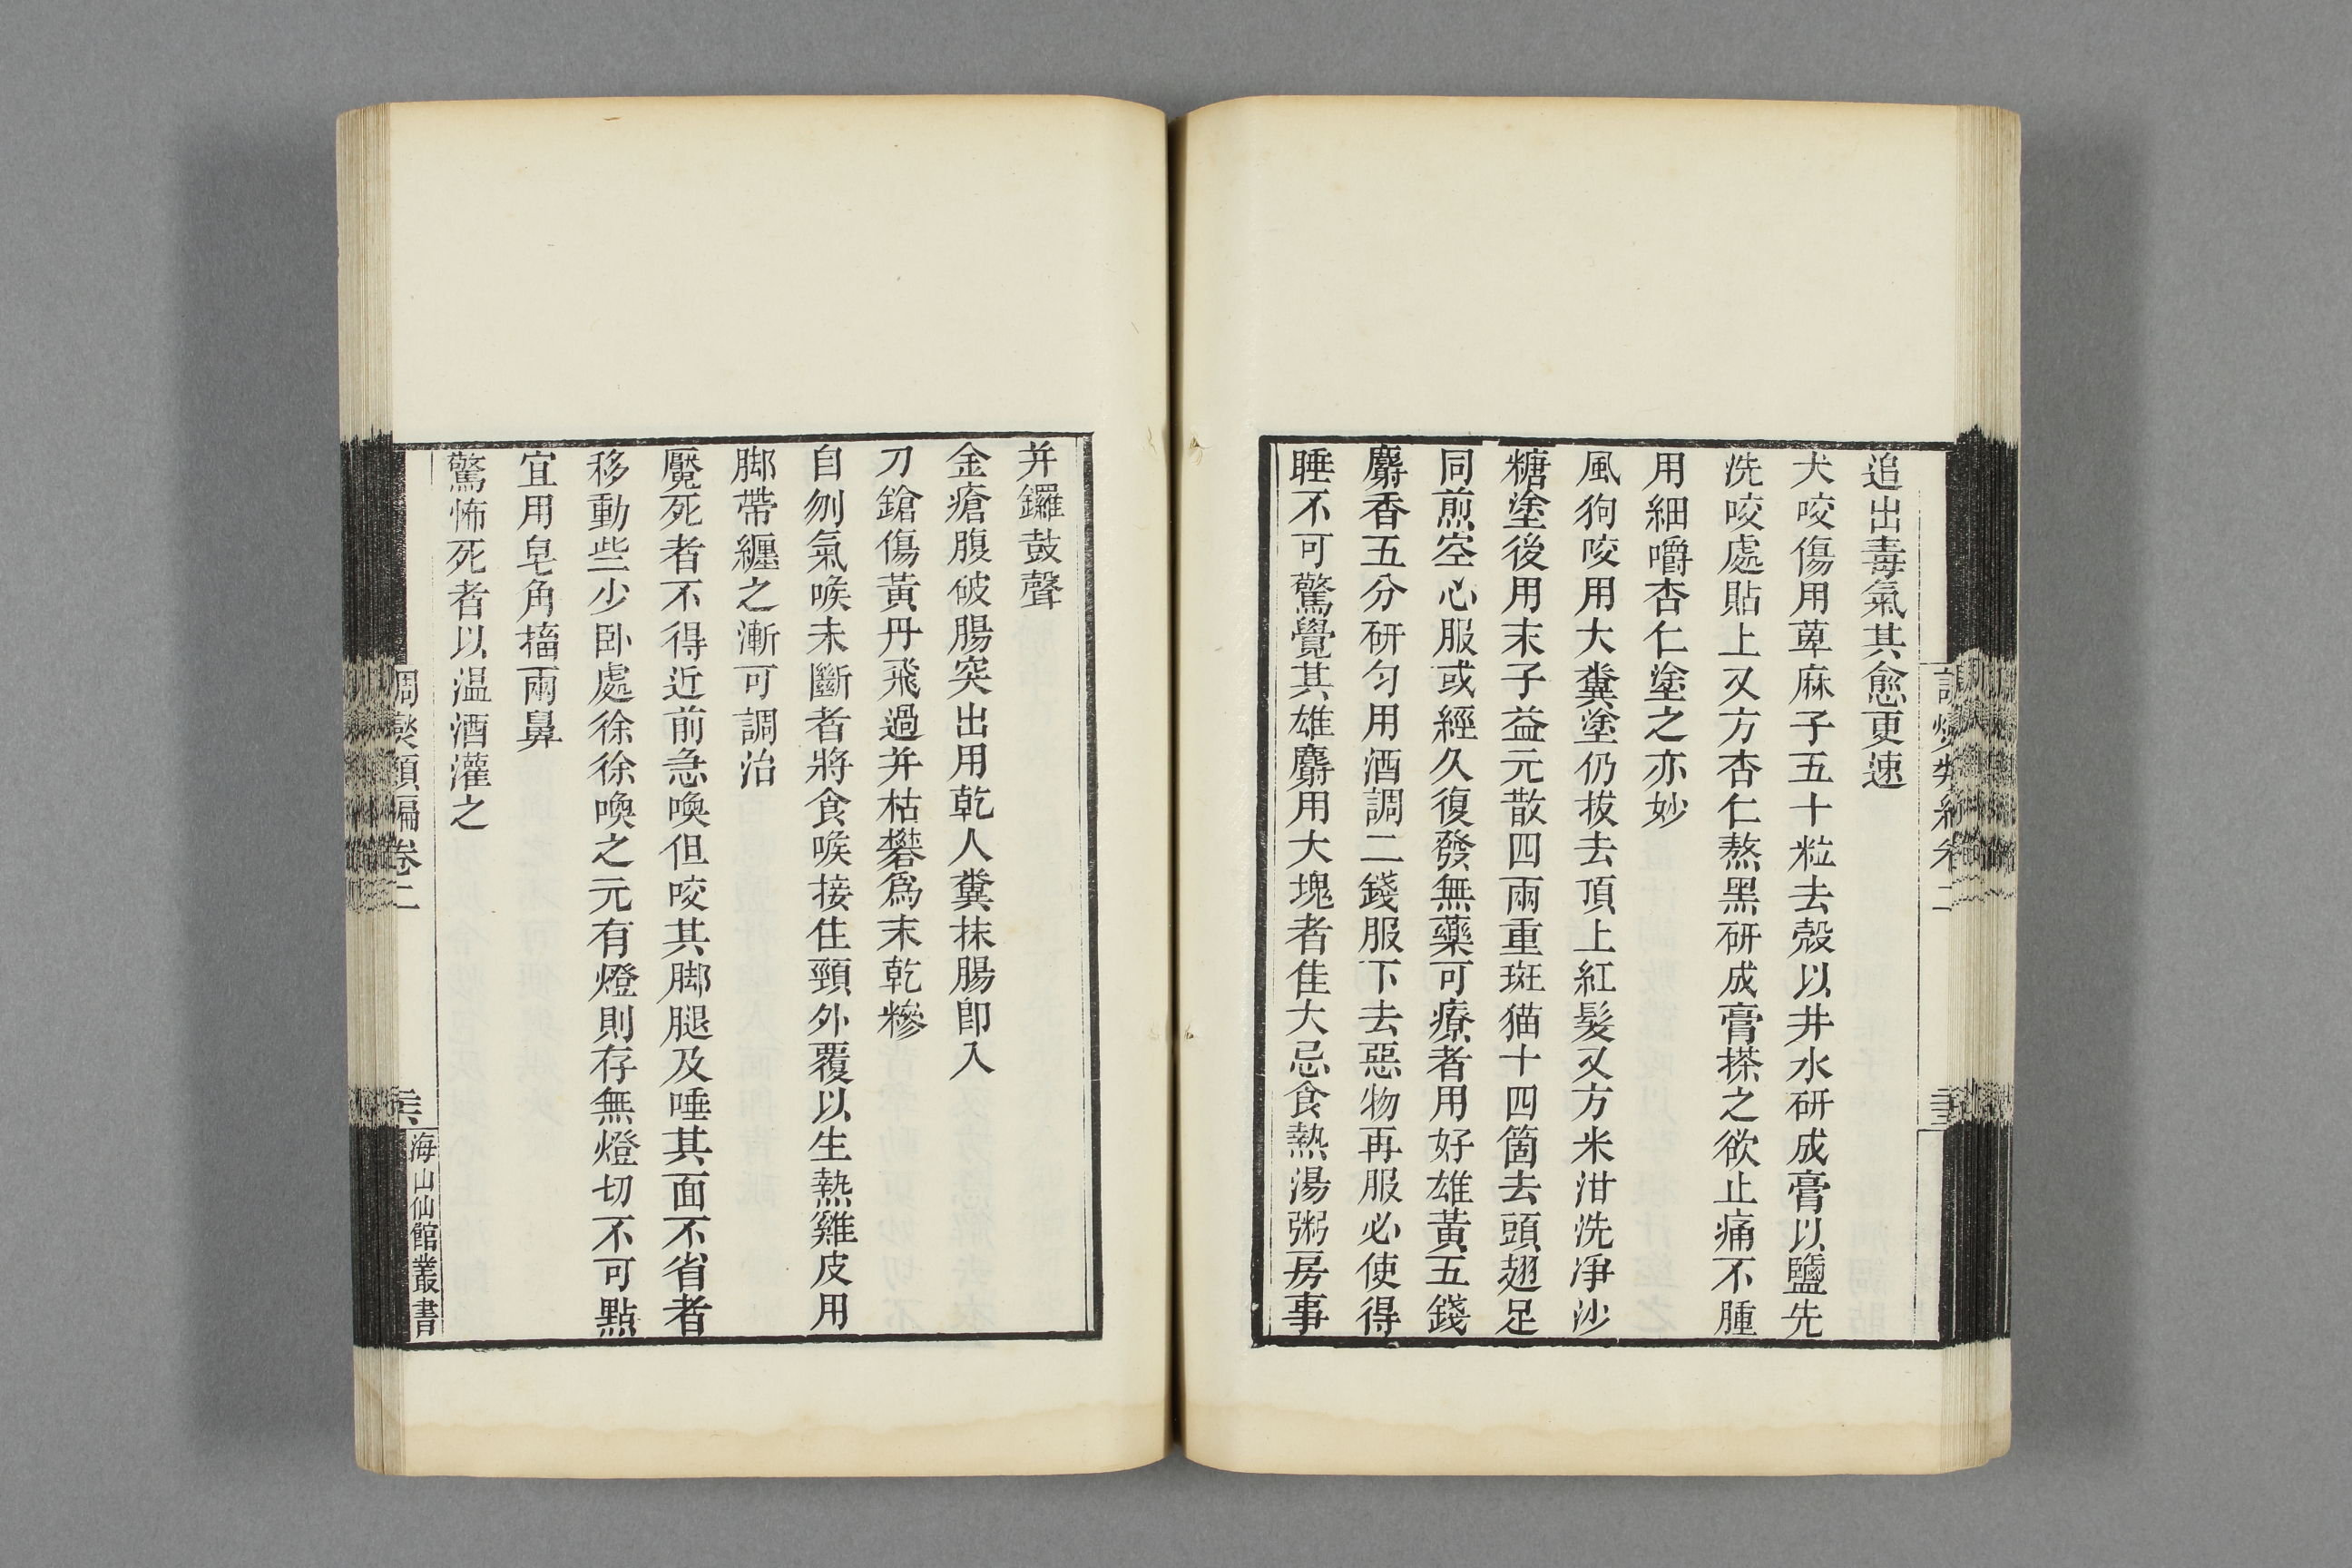 追出毒氣其愈更速
犬咬傷用萆麻子五十粒去殼以井水研成膏以鹽先
洗咬處貼上又方杏仁熬黑研成膏搽之欲止痛不腫
用細嚼杏仁塗之亦妙
風狗咬用大糞塗仍拔去頂上紅髮又方米泔洗凈沙
糖塗後用末子益元散四兩重斑猫十四箇去頭翅足
同煎空心服或經久復發無藥可療者用好雄黃五錢
麝香五分研匀用酒調二錢服下去惡物再服必使得
睡不可驚覺其雄麝用大塊者佳大忌食熱湯粥房事
并鑼鼓聲
金瘡腹破腸突出用乾人糞抹腸卽入
刀鎗傷黃丹飛過并枯礬爲末乾糝
自刎氣喉未斷者將食喉接住頸外覆以生熱雞皮用
脚帶纏之漸可調治
魘死者不得近前急喚但咬其脚腿及唾其面不省者
移動些少卧處徐徐喚之元有燈則存無燈切不可點
宜用皂角搐兩鼻
驚怖死者以温酒灌之
調燮類編卷二
海山仙館叢書